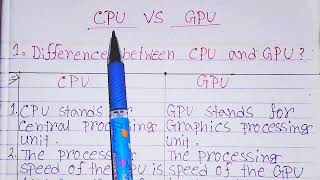 CPU VS GPU
1. Difference between CPU and GPU?
CPU GPU
1. CPU stands for GPU stands for
central processing Graphics processing
unit. unit.
2. The processing The processing
speed of the CPU is speed of the GPU